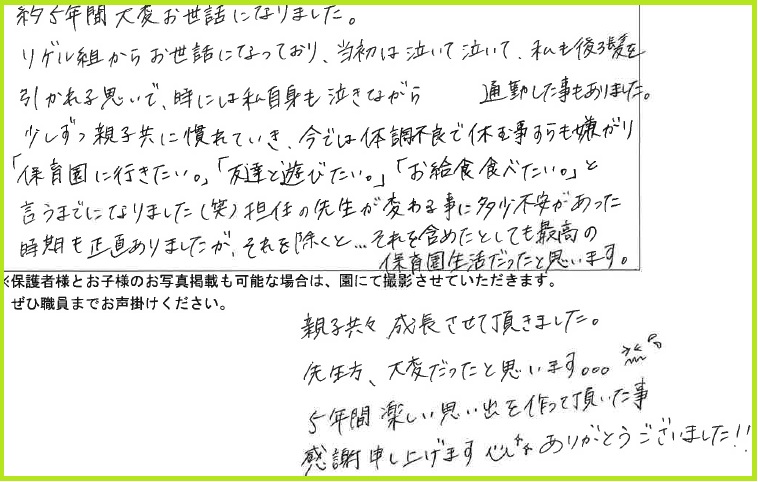 約5年間大変お世話になりました。
リゲル組からお世話になっており、当初は泣いて泣いて、私も後ろ髪を
引かれる思いで、時には私自身も泣きながら 通勤した事もありました。
少しずつ親子共に慣れていき、今では体調不良で休む事すらも嫌がり
「保育園に行きたい。」「友達と遊びたい。」「お給食食べたい。」と
言うまでになりました(笑)担任の先生が変わる事に多少不安があった
時期も正直ありましたが、それを除くと…それを含めたとしても最高の
保育園生活だったと思います。
※保護者様とお子様のお写真掲載も可能な場合は、園にて撮影させていただきます。
ぜひ職員までお声掛けください。
親子共々成長させて頂きました。
先生方、大変だったと思います。。。
5年間楽しい思い出を作って頂いた事
感謝申し上げます ありがとうございました!!